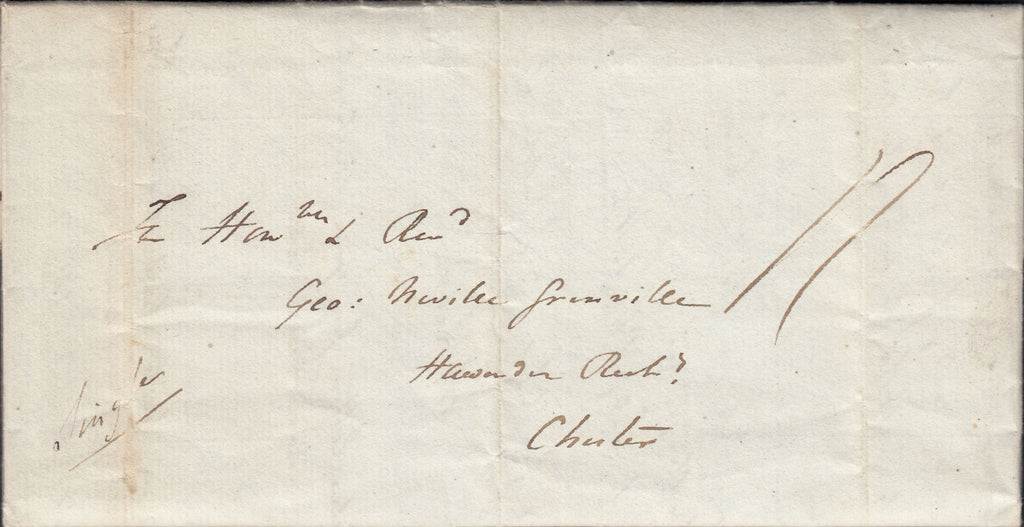 The Honble & Revd
Geo: Neville Grenville
Hawarden Recty
Chester
Single
11